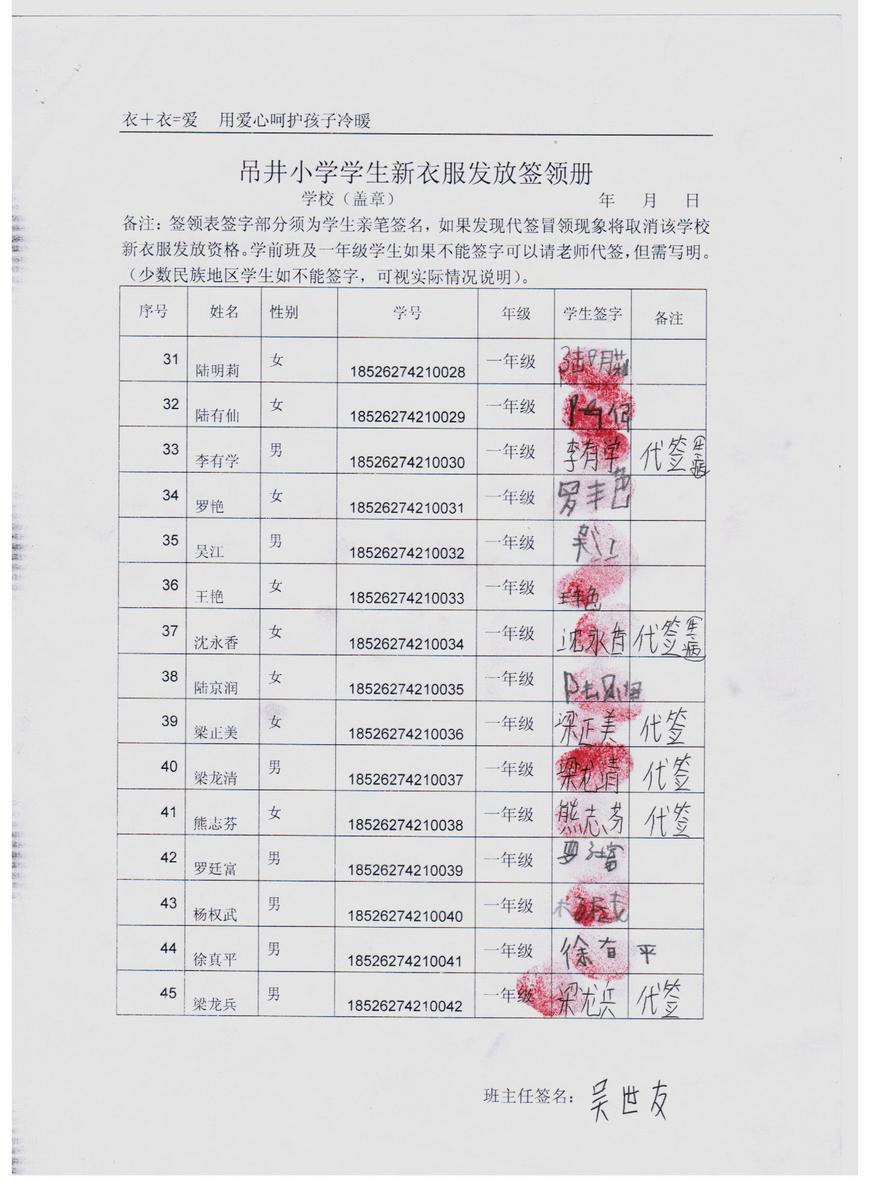 衣＋衣=爱　用爱心呵护孩子冷暖
吊井小学学生新衣服发放签领册
学校（盖章）　年　月　日
备注：签领表签字部分须为学生亲笔签名，如果发现代签冒领现象将取消该学校
新衣服发放资格。学前班及一年级学生如果不能签字可以请老师代签，但需写明。
（少数民族地区学生如不能签字，可视实际情况说明）。
序号 姓名 性别 学号 年级 学生签字 备注
31 陆明莉 女 18526274210028 一年级 陆明莉
32 陆有仙 女 18526274210029 一年级
33 李有学 男 18526274210030 一年级 李有学 代签 生病
34 罗艳 女 18526274210031 一年级 罗艳
35 吴江 男 18526274210032 一年级 吴江
36 王艳 女 18526274210033 一年级 王艳
37 沈永香 女 18526274210034 一年级 沈永香 代签 生病
38 陆京润 女 18526274210035 一年级
39 梁正美 女 18526274210036 一年级 梁正美 代签
40 梁龙清 男 18526274210037 一年级 梁龙清 代签
41 熊志芬 女 18526274210038 一年级 熊志芬 代签
42 罗廷富 男 18526274210039 一年级 罗廷富
43 杨权武 男 18526274210040 一年级
44 徐真平 男 18526274210041 一年级 徐真平
45 梁龙兵 男 18526274210042 一年级 梁龙兵 代签
班主任签名：吴世友